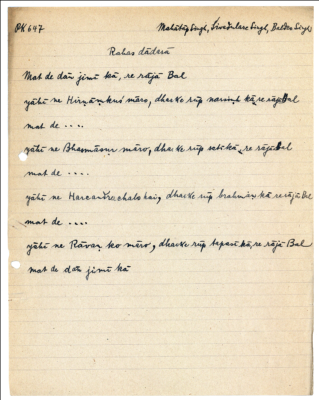 DK 647 Mahābīr Singh, Śivadulare Singh, Baldev Singh
Rahas dāderā
Mat de dān jimī kā, re rājā Bal
yāhī ne Hirṇāṃkuś māro, dharke rūp narsiṇh kā, re rājā Bal
mat de ....
yāhī ne Bhasmāsur māro, dharke rūp satī kā, re rājā Bal
mat de ....
yāhī ne Harcandra chalo hai, dharke rūp brahman kā re rājā Bal
mat de ....
yāhī ne Rāvaṇ ko māro, dharke rūp tapasī kā, re rājā Bal
mat de dān jimī kā